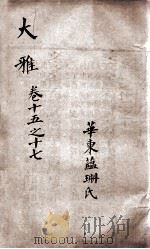 大雅
卷十五之十七
華東蕴珊氏